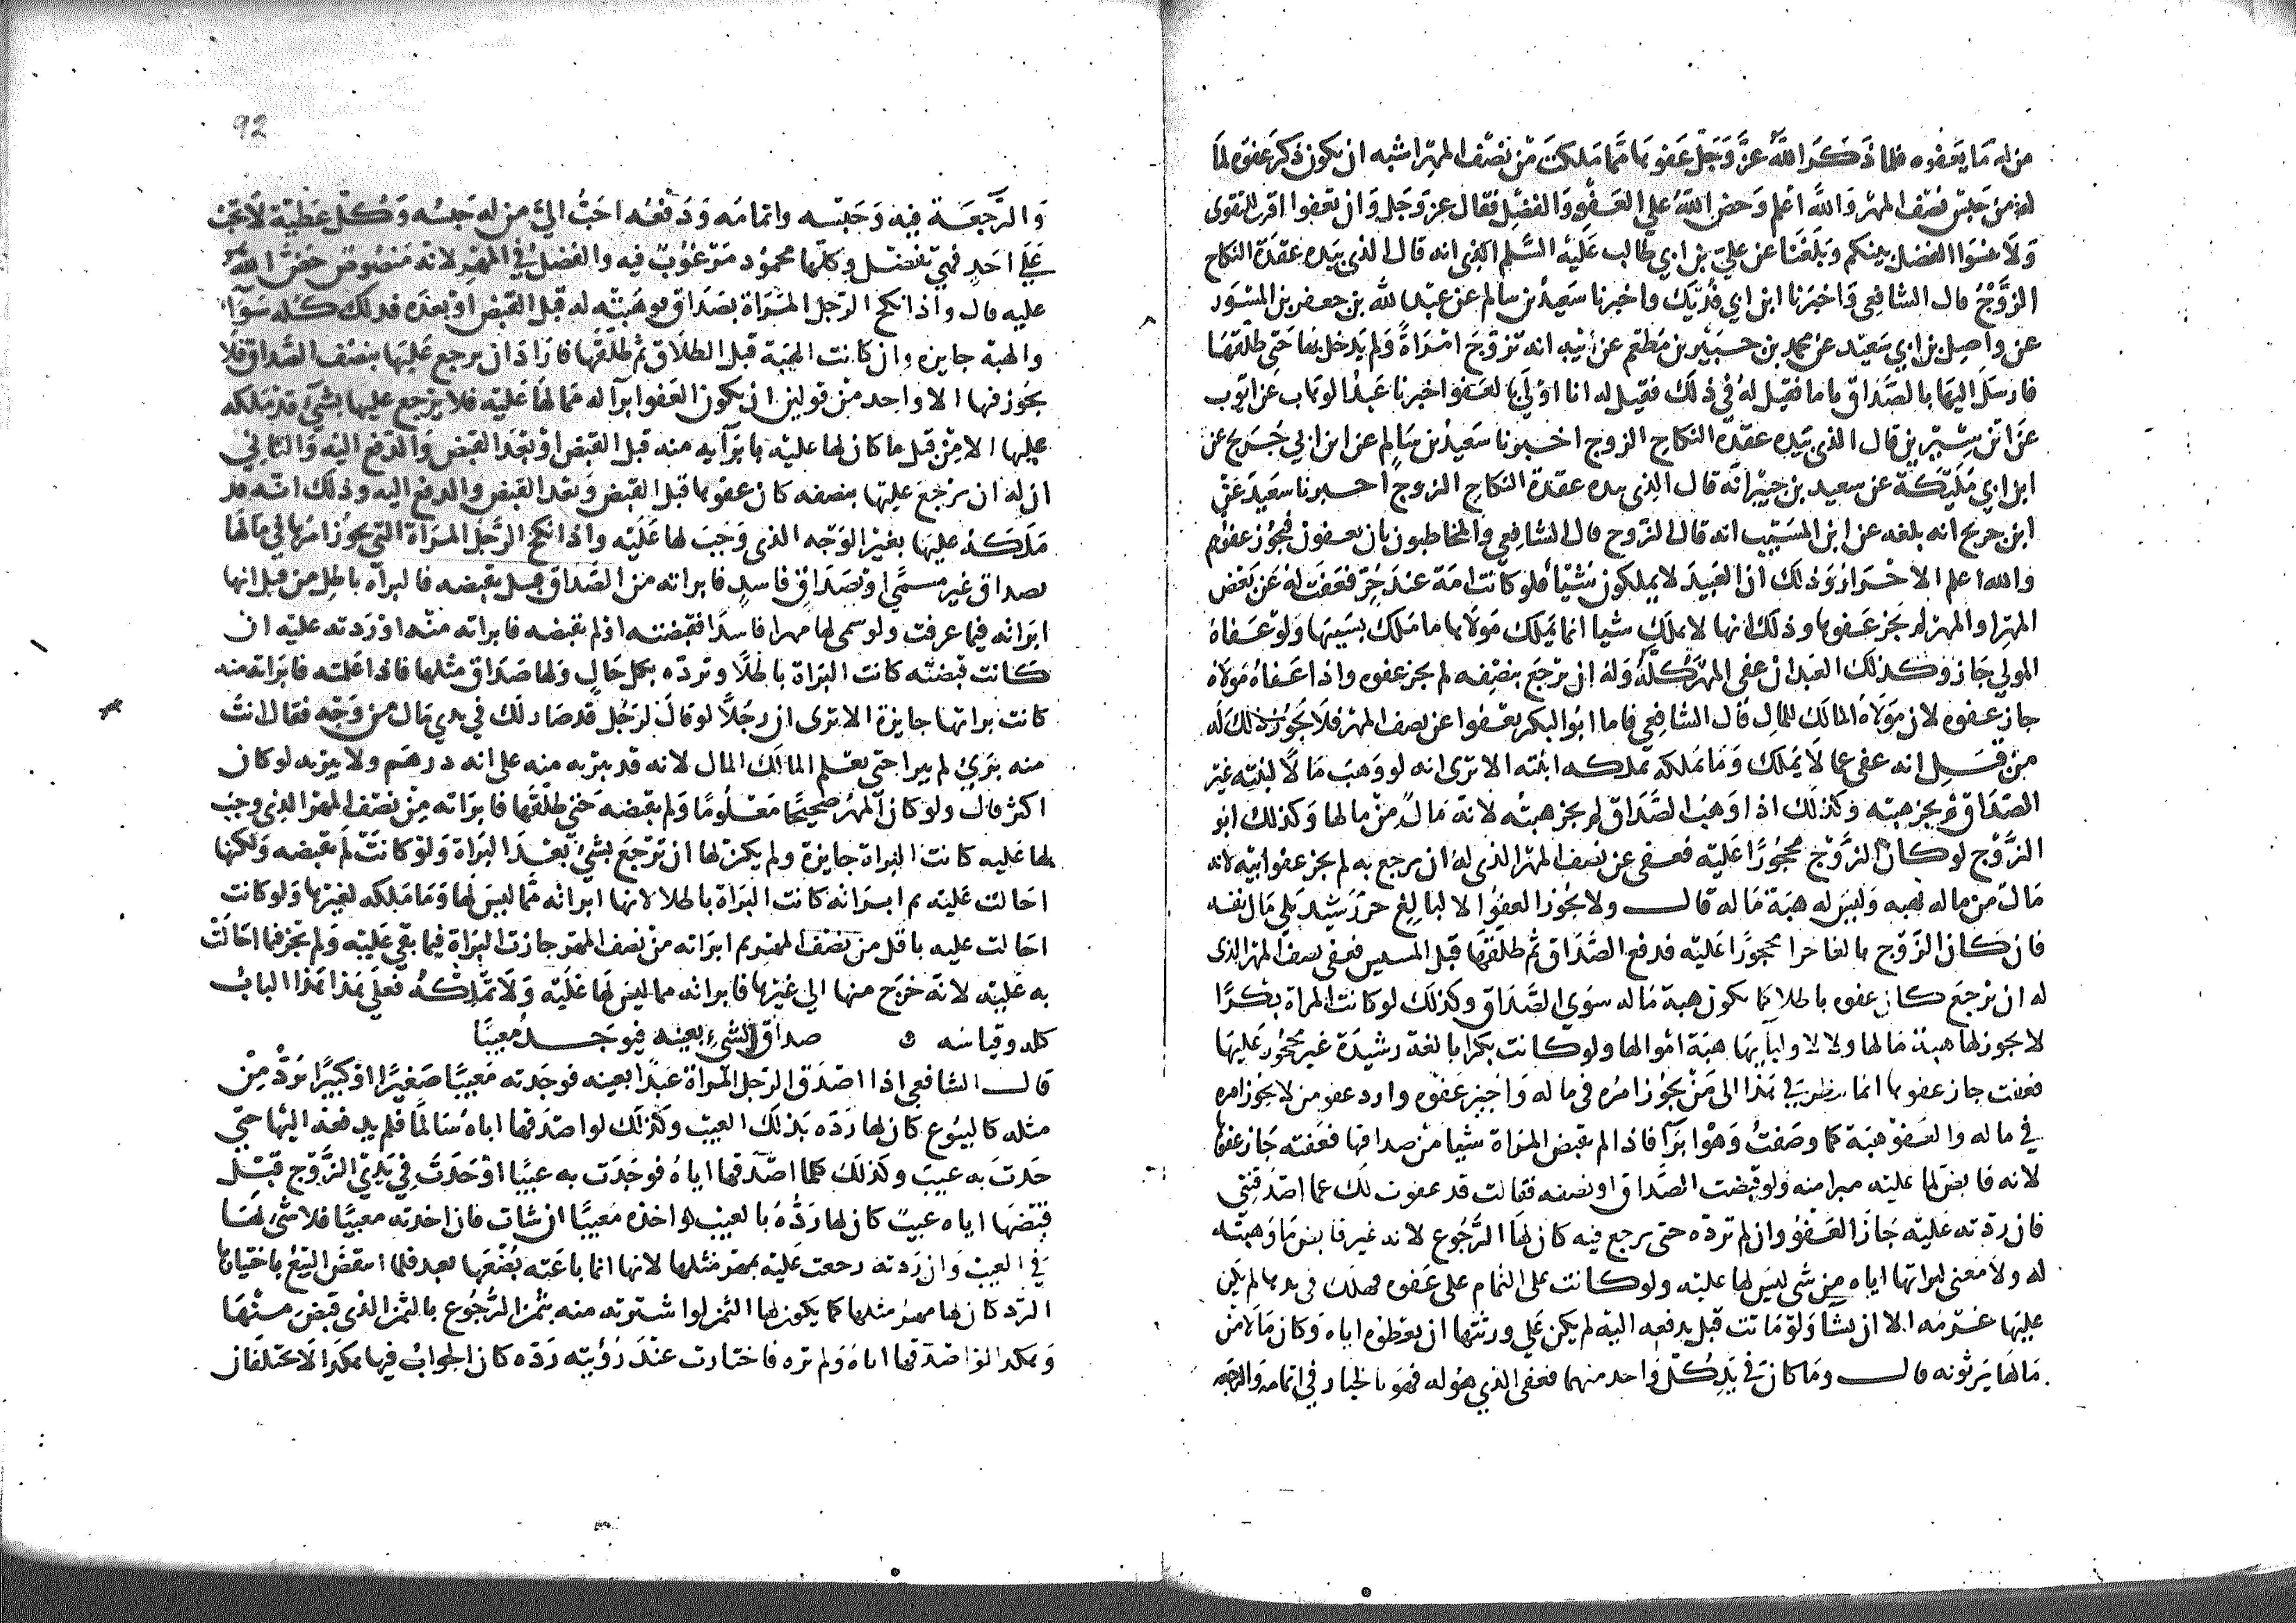 من له ما يعفوه فلما ذكر الله عز وجل عفوها مما ملكت من نصف المهر اشبه ان يكون ذكر عفوه لما
له من حبس نصف المهر والله اعلم وحض الله على العفو والفضل فقال عز وجل وان تعفوا اقرب للتقوى
ولا تنسوا الفضل بينكم وبلغنا عن علي بن ابي طالب عليه السلم انه قال الذى بيده عقدة النكاح
الزوج قال الشافعي واخبرنا ابن ابي فديك واخبرنا سعيد بن سالم عن عبد الله بن جعفر بن المسور
عن واصل بن ابي سعيد عن محمد بن جبير بن مطعم عن ابيه انه تزوج امراة ولم يدخل بها حتى طلقها
فارسل اليها بالصداق تاما فقيل له في ذلك فقيل له انا اولي بالعفو اخبرنا عبد الوهاب عن ايوب
عن ابن سيرين قال الذى بيده عقدة النكاح الزوج اخبرنا سعيد بن سالم عن ابن ابي جريج عن
ابن ابي مليكة عن سعيد بن جبير انه قال الذى بيده عقدة النكاح الزوج اخبرنا سعيد عن
ابن جريج انه بلغه عن ابن المسيب انه قال الزوج قال الشافعي والمخاطبون بان يعفون فيجوز عفوهم
والله اعلم الاحرار وذلك ان العبيد لا يملكون شيئا فلو كانت امة عند حر فعفت له عن بعض
المهر او المهر لم يجز عفوها وذلك انها لا تملك شيا انما يملك مولاها ما ملك بسببها ولو عفاه
المولي جاز وكذلك العبد ان عفى المهر كله وله ان يرجع بنصفه لم يجز عفوه واذا عفاه مولاه
جاز عفوه لان مولاه المالك للمال قال الشافعي فاما ابو البكر يعفوا عن نصف المهر فلا يجوز ذلك له
من قبل انه عفى عما لا يملك وما تملكه تملكه ابنته الا ترى انه لو وهب مالا لبنته غير
الصداق لم يجز هبته وكذلك اذا وهب الصداق لم يجز هبته لانه مال من مالها وكذلك ابو
الزوج لو كان الزوج محجورا عليه فعفى عن نصف المهر الذى له ان يرجع به لم يجز عفو ابيه لانه
مال من ماله يهبه وليس له هبة ماله قال ولا يجوز العفو الا لبالغ حر رشيد يلي مال نفسه
فان كان الزوج بالغا حرا محجورا عليه فدفع الصداق ثم طلقها قبل المسيس فعفى نصف المهر الذى
له ان يرجع كان عفوه باطلا كما يكون هبة ماله سوي الصداق وكذلك لو كانت المراة بكرا
لا يجوز لها هبة مالها ولا لاوليآيها هبة اموالها ولو كانت بكرا بالغة رشيدة غير محجور عليها
فعفت جاز عفوها انما ينظر في هذا الى من يجوز امره في ماله واجيز عفوه وارد عفو من لا يجوز امره
في ماله والعفو هبة كما وصفت وهو ابرآ فاذا لم تقبض المراة شيا من صداقها فعفته جاز عفوها
لانه قابض لما عليه مبرا منه ولو قبضت الصداق او نصفه فقالت قد عفوت لك عما اصدقتني
فان ردته عليه جاز العفو وان لم ترده حتى يرجع فيه كان لها الرجوع لانه غير قابض ما وهبته
له ولا معنى لبراتها اياه من شي ليس لها عليه ولو كانت على التمام على عفوه فهلك في يدها لم يكن
عليها غرمه الا ان يشا ولو ماتت قبل يدفعه اليه لم يكن علي ورثتها ان يعطوه اياه وكان مالا من
مالها يرثونه قال وما كان في يد كل واحد منهما فعفى الذي هو له فهو بالخيار في اتمامه والرجعه
92
والرجعة فيه وحبسه واتمامه ودفعه احب الي من له حبسه وكل عطية لا تجب
علي احد فهي تفضل وكلها محمود مرغوب فيه والفضل في المهر لانه منصوص حض الله
عليه قال واذا نكح الرجل المراة بصداق فوهبته له قبل القبض او بعده فدلك كله سوآ
والهبة جايزه وان كانت الهبة قبل الطلاق ثم طلقها فاراد ان يرجع عليها بنصف الصداق فلا
يجوز فيها الا واحد من قولين ان يكون العفو ابرآ له مما لها عليه فلا يرجع عليها بشئ قد تملكه
عليها الا من قبل ما كان لها عليه بابرآيه منه قبل القبض او بعد القبض والدفع اليه والثاني
ان له ان يرجع عليها بنصفه كان عفوها قبل القبض وبعد القبض والدفع اليه وذلك انه قد
ملكه عليها بغير الوجه الذى وجب لها عليه واذا نكح الرجل المراة التي يجوز امرها في مالها
بصداق غير مسمي او بصداق فاسد فابراته من الصداق قبل يقبضه فالبرآه باطل من قبل انها
ابراته فيما عرفت ولو سمى لها مهرا فاسدا فقبضته اذ لم تقبضه فابراته منه او ردته عليه ان
كانت قبضته كانت البراة باطلا وترده بكل حال ولها صداق مثلها فاذا علمته فابراته منه
كانت براتها جايزة الا ترى ان رجلا لو قال لرجل قد صار لك في يدي مال من وجه فقال انت
منه بري لم يبرا حتى يعلم المالك المال لانه قد يبريه منه على انه درهم ولا يبريه لو كان
اكثر قال ولو كان المهر صحيحا معلوما ولم تقبضه حتى طلقها فابراته من نصف المهر الذي وجب
لها عليه كانت البراة جايزة ولم يكن لها ان ترجع بشئ بعد البراة ولو كانت لم تقبضه ولكنها
احالت عليه ثم ابراته كانت البراة باطلا لانها ابراته مما ليس لها وما ملكه لغيرها ولو كانت
احالت عليه باقل من نصف المهر ثم ابراته من نصف المهر جازت البراة فيما بقي عليه ولم تجز فيما احالت
به عليه لانه خرج منها الي غيرها فابراته مما ليس لها عليه ولا تملكه فعلي هذا هذا الباب
كله وقياسه ه صداق الشيء بعينه فيوجد معيبا
قال الشافعي اذا اصدق الرجل المراة عبدا بعينه فوجدته معيبا صغيرا او كبيرا يرد من
مثله كالبيوع كان لها رده بذلك العيب وكذلك لو اصدقها اياه سالما فلم يدفعه اليها حتي
حدث به عيب وكذلك كلما اصدقها اياه فوجدت به عيبا او حدث في يدي الزوج قبل
قبضها اياه عيب كان لها رده بالعيب او اخذه معيبا ان شات فان اخذته معيبا فلا شئ لها
في العيب وان ردته رجعت عليه بمهر مثلها لانها انما باعته بضعها بعبد فلما انتقض البيع باختيارها
الرد كان لها مهر مثلها كما يكون لها الثمن لو اشترته منه بثمن الرجوع بالثمن الذى قبض منها
وهكذا لو اصدقها اياه ولم تره فاختارت عند رؤيته رده كان الجواب فيها هكذا لا يختلفان